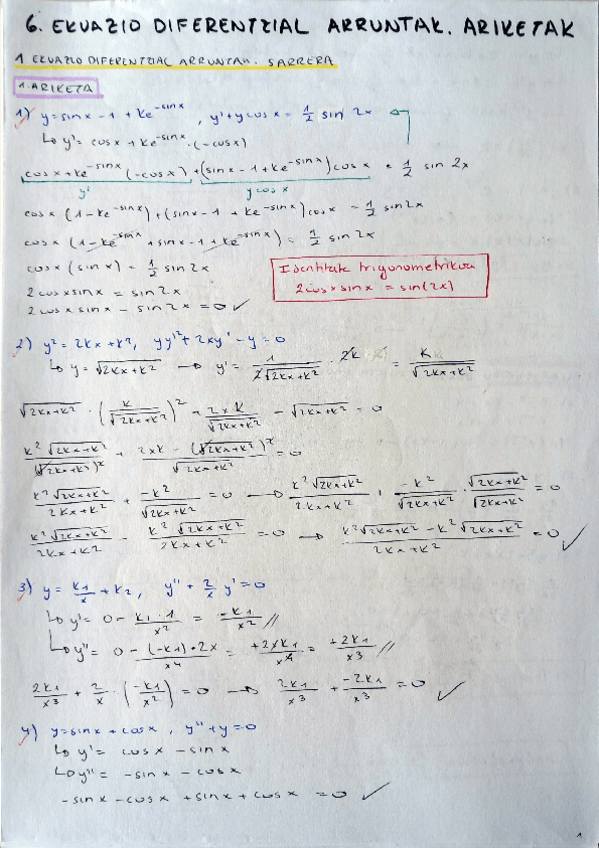 6. EKUAZIO DIFERENTZIAL ARRUNTAK. ARIKETAK
1 EKUAZIO DIFERENTZIAL ARRUNTAK. SARRERA
1. ARIKETA
1) y = sin x - 1 + ke^{-sin x}, y' + y cos x = 1/2 sin 2x
↳ y' = cos x + ke^{-sin x} · (-cos x)
cos x + ke^{-sin x} (-cos x) + (sin x - 1 + ke^{-sin x}) cos x = 1/2 sin 2x
y' y cos x
cos x (1 - ke^{-sin x}) + (sin x - 1 + ke^{-sin x}) cos x = 1/2 sin 2x
cos x (1 - ke^{-sin x} + sin x - 1 + ke^{-sin x}) = 1/2 sin 2x
cos x (sin x) = 1/2 sin 2x
2 cos x sin x = sin 2x
2 cos x sin x - sin 2x = 0 ✓
Identitate trigonometrikoa
2 cos x sin x = sin(2x)
2) y² = 2kx + k², yy'² + 2xy' - y = 0
↳ y = √(2kx + k²) → y' = 1/(2√(2kx + k²)) · 2k = k/√(2kx + k²)
√(2kx + k²) · (k/√(2kx + k²))² + 2xk/√(2kx + k²) - √(2kx + k²) = 0
k²√(2kx + k²)/(√(2kx + k²))² + (2xk - (√(2kx + k²))²)/√(2kx + k²) = 0
k²√(2kx + k²)/(2kx + k²) + -k²/√(2kx + k²) = 0 → k²√(2kx + k²)/(2kx + k²) + -k²/√(2kx + k²) · √(2kx + k²)/√(2kx + k²) = 0
k²√(2kx + k²)/(2kx + k²) - k²√(2kx + k²)/(2kx + k²) = 0 → (k²√(2kx + k²) - k²√(2kx + k²))/(2kx + k²) = 0 ✓
3) y = k₁/x + k₂, y'' + 2/x y' = 0
↳ y' = 0 - k₁·1/x² = -k₁/x² //
↳ y'' = 0 - (-k₁)·2x/x⁴ = +2xk₁/x⁴ = +2k₁/x³ //
2k₁/x³ + 2/x · (-k₁/x²) = 0 → 2k₁/x³ + -2k₁/x³ = 0 ✓
4) y = sin x + cos x, y'' + y = 0
↳ y' = cos x - sin x
↳ y'' = -sin x - cos x
-sin x - cos x + sin x + cos x = 0 ✓
1